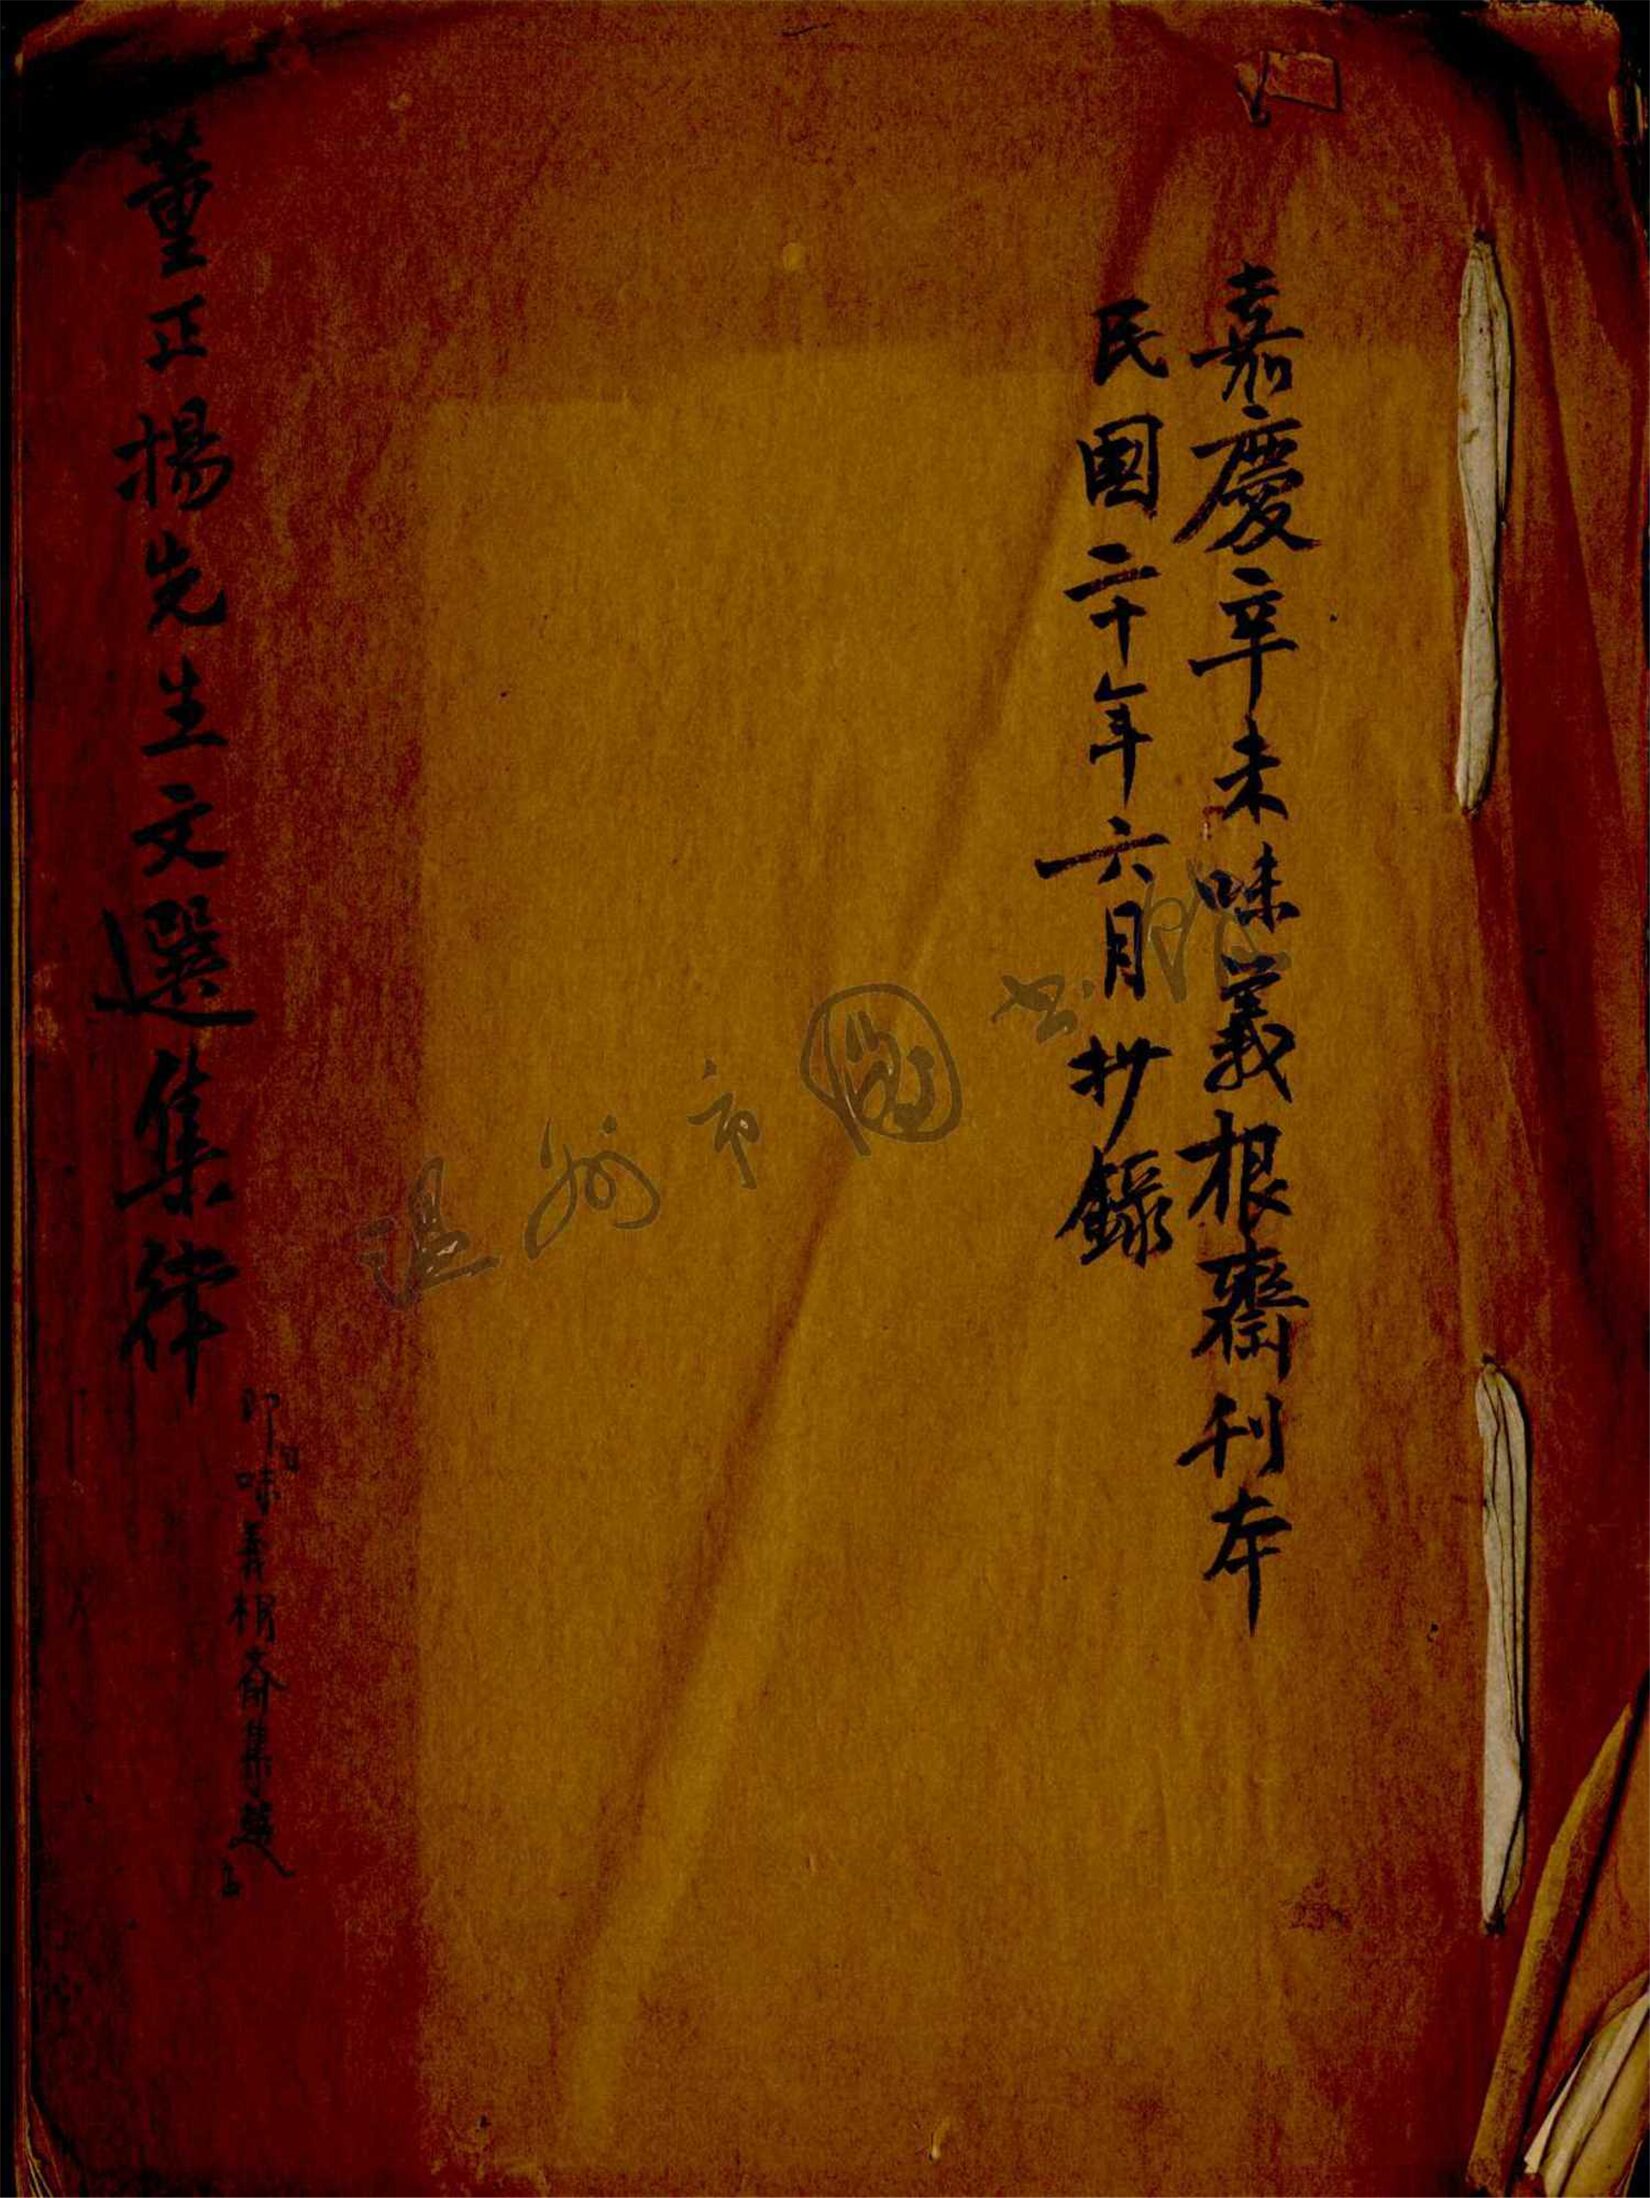 嘉慶辛未味義根齋刊本
民國二十年六月抄錄
董正揚先生文選集律
味義根齋集選
温州市圖书館